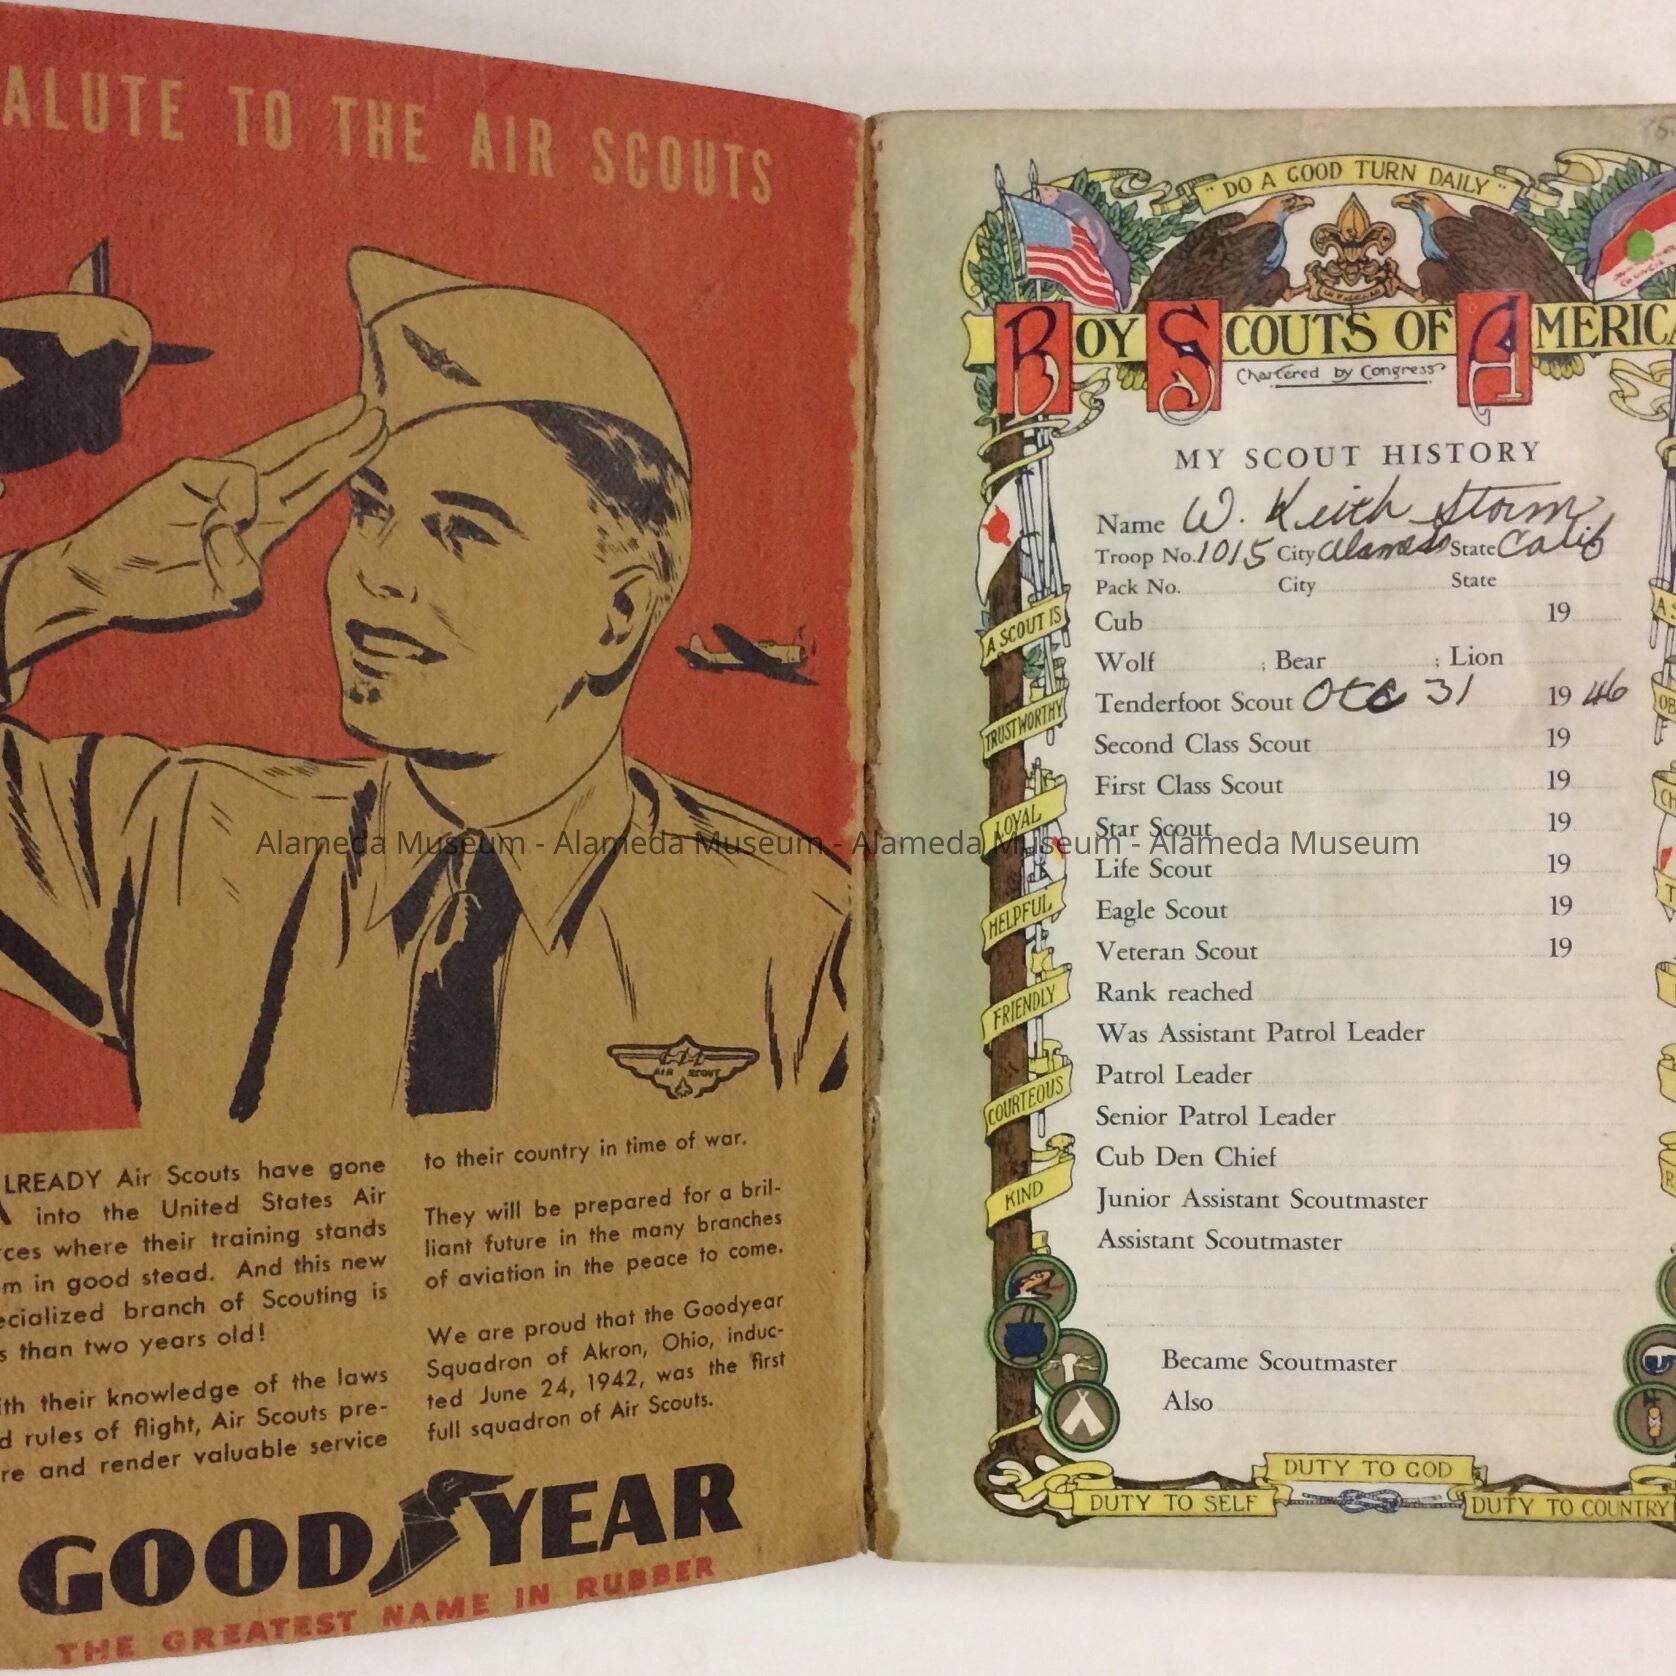 ALUTE TO THE AIR SCOUTS
LREADY Air Scouts have gone
into the United States Air
rces where their training stands
m in good stead. And this new
ecialized branch of Scouting is
s than two years old!
ith their knowledge of the laws
d rules of flight, Air Scouts pre-
re and render valuable service
to their country in time of war.
They will be prepared for a bril-
liant future in the many branches
of aviation in the peace to come.
We are proud that the Goodyear
Squadron of Akron, Ohio, induc-
ted June 24, 1942, was the first
full squadron of Air Scouts.
AIR SCOUT
GOOD YEAR
THE GREATEST NAME IN RUBBER
"DO A GOOD TURN DAILY"
BOY SCOUTS OF AMERICA
Chartered by Congress
MY SCOUT HISTORY
Name W. Keith Storm
Troop No. 1015 City Alameda State Calif
Pack No. City State
Cub 19
Wolf ; Bear ; Lion
Tenderfoot Scout Oct 31 19 46
Second Class Scout 19
First Class Scout 19
Star Scout 19
Life Scout 19
Eagle Scout 19
Veteran Scout 19
Rank reached
Was Assistant Patrol Leader
Patrol Leader
Senior Patrol Leader
Cub Den Chief
Junior Assistant Scoutmaster
Assistant Scoutmaster
Became Scoutmaster
Also
A SCOUT IS
TRUSTWORTHY
LOYAL
HELPFUL
FRIENDLY
COURTEOUS
KIND
DUTY TO GOD
DUTY TO SELF
DUTY TO COUNTRY
Alameda Museum - Alameda Museum - Alameda Museum - Alameda Museum